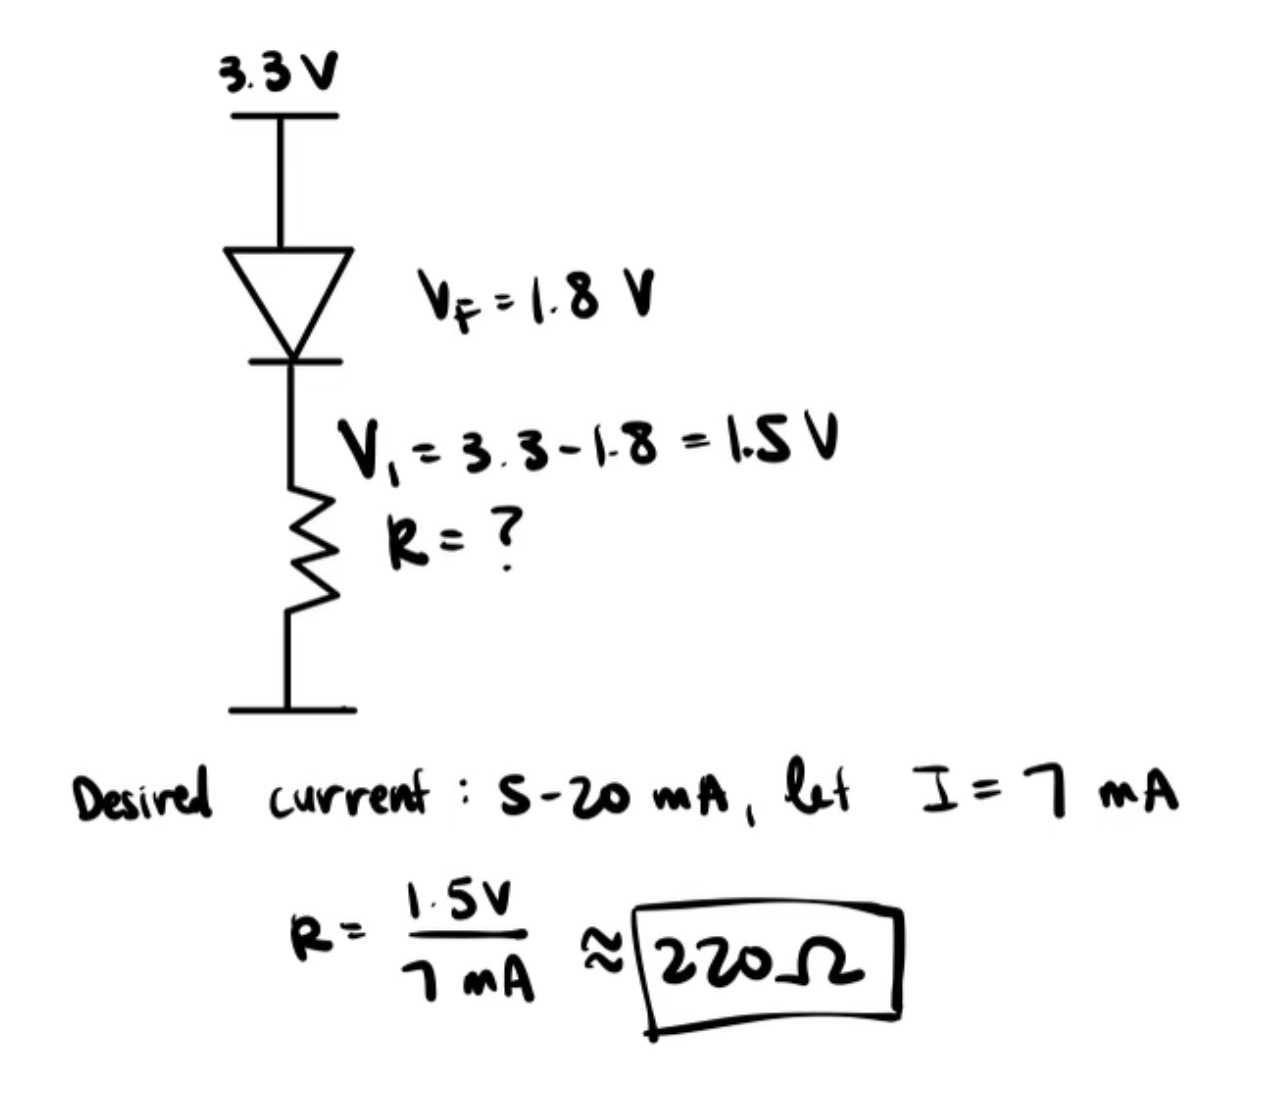 3.3 V
V_F = 1.8 V
V_1 = 3.3 - 1.8 = 1.5 V
R = ?
Desired current : 5-20 mA, let I = 7 mA
R = 1.5V / 7 mA ≈ 220 Ω